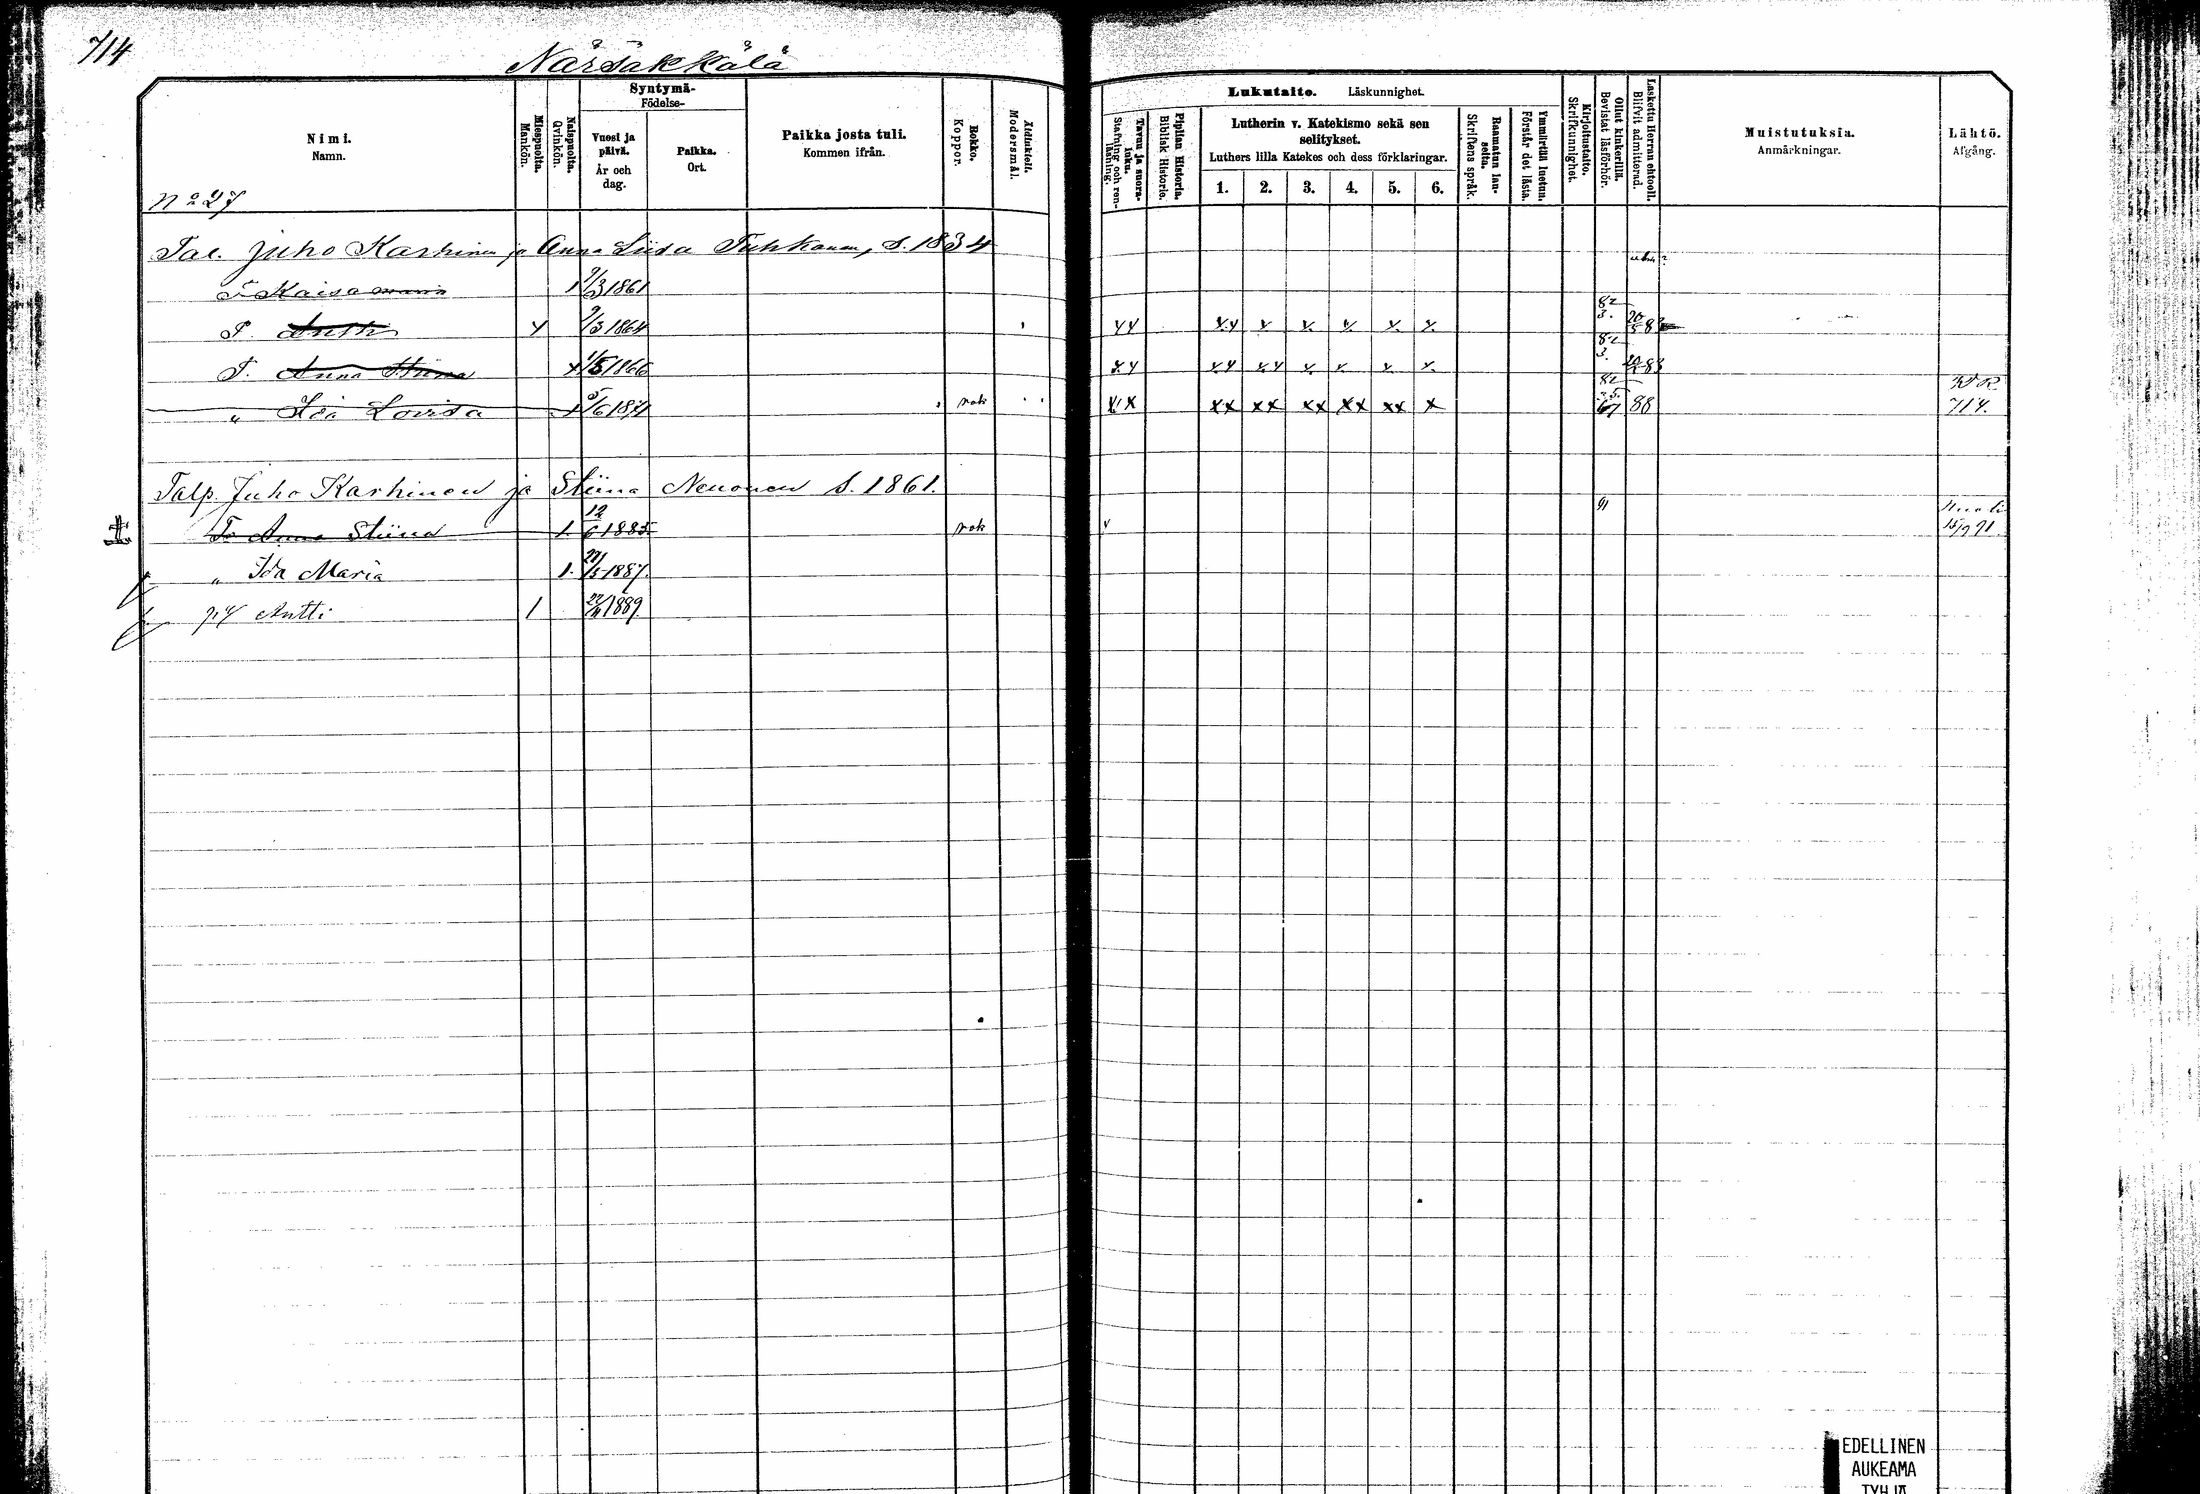 714
Närsäkkälä
Nimi.
Namn.
Miespuolta.
Mankön.
Naispuolta.
Qvinkön.
Syntymä-
Födelse-
Vuosi ja
päivä.
År och
dag.
Paikka.
Ort.
Paikka josta tuli.
Kommen ifrån.
Rokko.
Koppor.
Äidinkieli.
Modersmål.
Lukutaito. Läskunnighet.
Tavuu ja suora-
luku.
Stafning och ren-
läsning.
Piplian Historia.
Biblisk Historie.
Lutherin v. Katekismo sekä sen
selitykset.
Luthers lilla Katekes och dess förklaringar.
1. 2. 3. 4. 5. 6.
Raamatun lau-
seita.
Skriftens språk.
Ymmärtää luetun.
Förstår det lästa.
Kirjoitustaito.
Skrifkunnighet.
Ollut kinkerillä.
Bevistat läsförhör.
Laskettu Herran ehtooll.
Blifvit admitterad.
Muistutuksia.
Anmärkningar.
Lähtö.
Afgång.
No 27
Tal. Juho Karhinen ja Anna Liisa Tuhkanen, S. 1834
T. Kaisa Maria 1 9/3 1861
T. Antti 9/3 1864 82 3. 20/5 83
T. Anna Stiina x 1/5 1866 82 3. 83
" Ida Lovisa x 5/6 1871 rok x x xx xx xx xx xx x 82 88 714.
Talp. Juho Karhinen ja Stiina Neuonen S. 1861.
T. Anna Stiina 1. 12/6 1885. rok v 91 Kuoli 15/9 91.
" Ida Maria 1. 1887.
Antti 1 1889
EDELLINEN
AUKEAMA
TYHJÄ